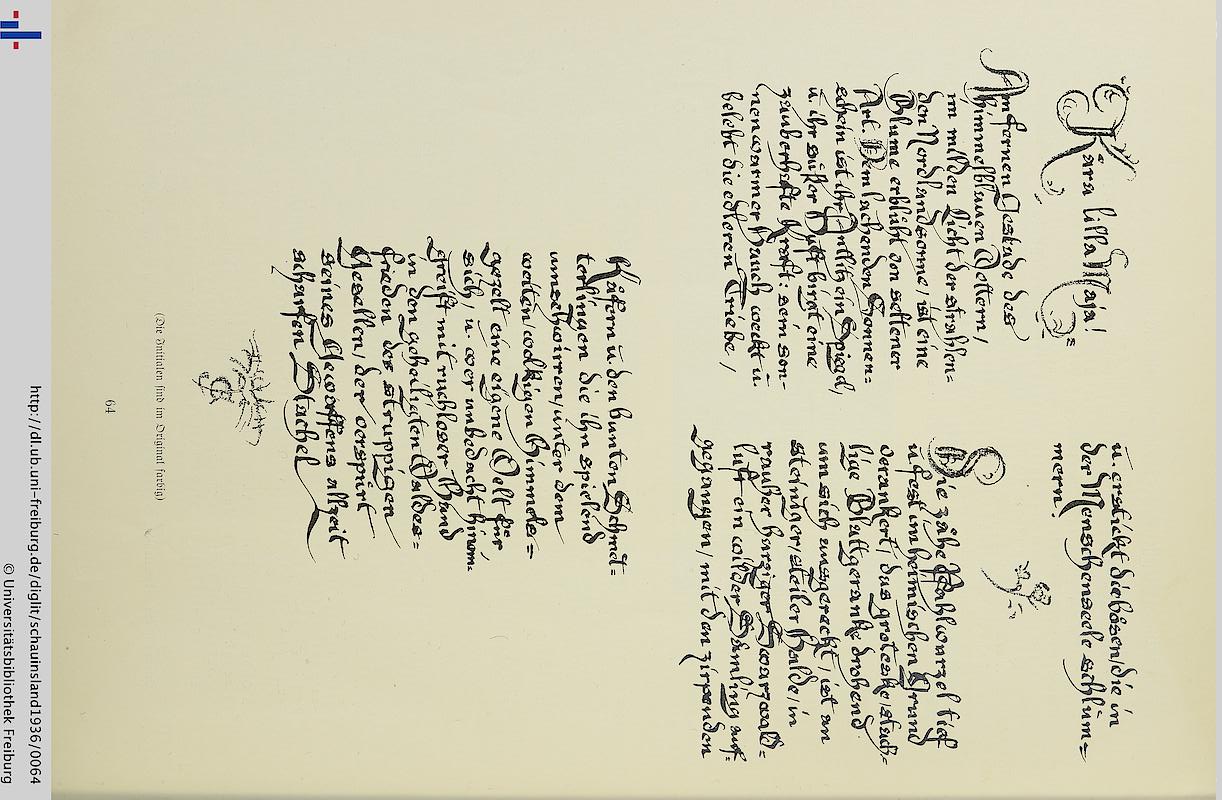 Kära lilla Maja!
Am fernen Gestade des
himmelblauen Oestern/
im milden Licht der strahlen=
den Nordlandsonne/ist eine
Blume erblüht von seltener
Art. Dem lachenden Sonnen=
schein ist ihr Antlitz ein Spiegel,
u. ihr süßer Duft birgt eine
zauberhafte Kraft: sein son-
nenwarmer Hauch weckt u-
belebt die edleren Triebe/
u. erstickt die bösen/die in
der Menschenseele schlum=
mern.
Die zähe Pfahlwurzel tief
u. fest im heimischen Grund
verankert/ das groteske/stach-
lige Blattgeranke drohend
um sich ausgereckt/ist an
steiniger/steiler Halde/in
rauher harziger Swarzwald=
luft ein wilder Sämling auf-
gegangen/mit den zirpenden
Käfern u. den bunten Schmet=
terlingen die ihn spielend
umschwirren/unter dem
weiten/wolkigen Himmels=
gezelt eine eigene Welt für
sich, u. wer unbedacht hinein-
greift mit ruchloser Hand
in den geheiligten Waldes=
frieden des struppigen
Gesellen/ der verspürt
seines Gewaffens allzeit
scharfen Stachel
(Die Initialen sind im Original farbig)
64
http://dl.ub.uni-freiburg.de/diglit/schauinsland1936/0064
© Universitätsbibliothek Freiburg